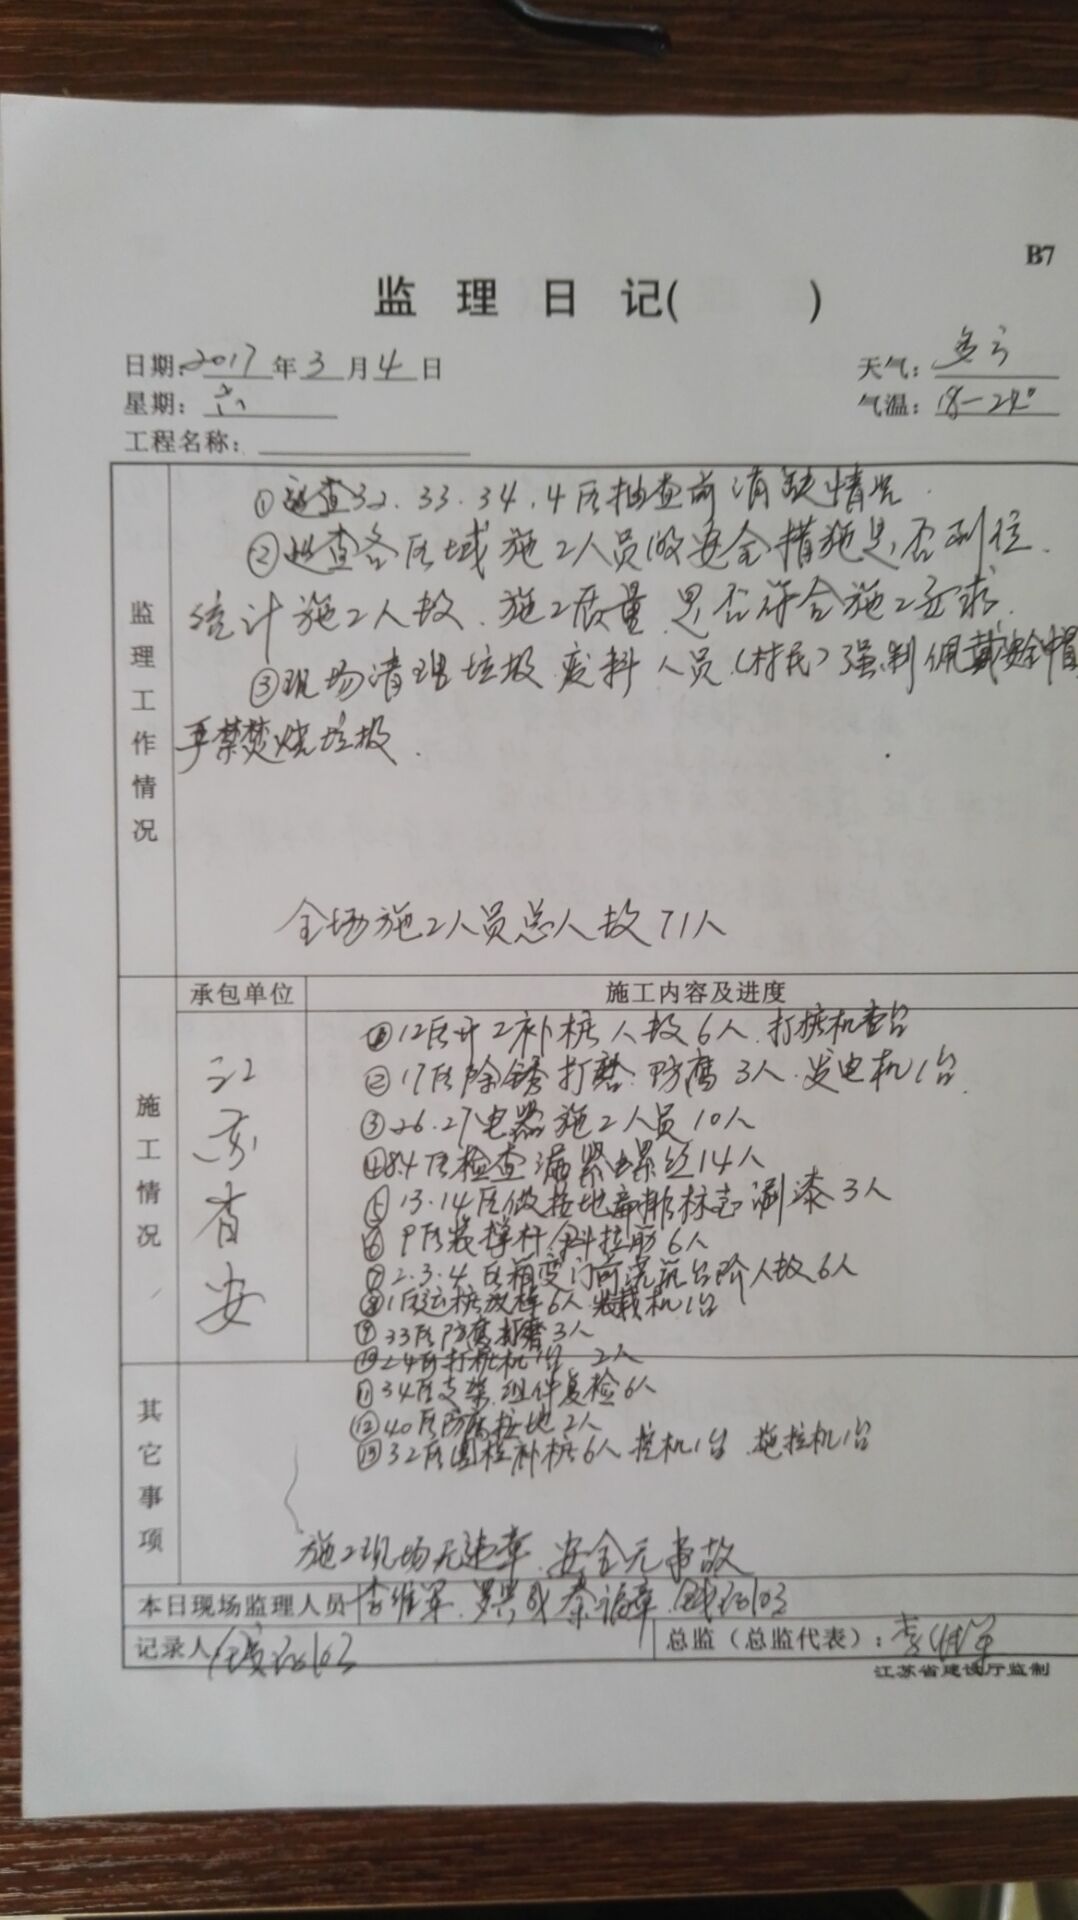 B7
监 理 日 记( )
日期: 2017 年 3 月 4 日
天气: 多云
星期: 六
气温: 18-24°
工程名称:
①巡查32.33.34.4区抽查前消缺情况.
②巡查各区域施工人员的安全措施是否到位.
统计施工人数.施工质量是否符合施工要求.
③现场清理垃圾废料人员(村民)强制佩戴安全帽
严禁焚烧垃圾.
全场施工人员总人数71人
监理工作情况
承包单位
施工内容及进度
施工情况
①12区开工补桩人数6人.打桩机壹台
②17区除锈打磨.防腐3人.发电机1台.
③26.27电器施工人员10人
④84区检查漏紧螺丝14人
⑤13.14区做接地扁排标志涮漆3人
⑥9区装撑杆斜拉筋6人
⑦2.3.4.区箱变门前浇筑台阶人数6人
⑧1区运桩放样6人.装载机1台
⑨33区防腐打磨3人
⑩24区打桩机1台 2人
⑪34区支架.组件复检6人
⑫40区防腐接地2人
⑬32区圆桩补桩6人 挖机1台 拖拉机1台
江
苏
安
其它事项
施工现场无违章.安全无事故
本日现场监理人员 李维军.罗兴成 秦福章.
记录人
总监(总监代表): 李维军
江苏省建设厅监制